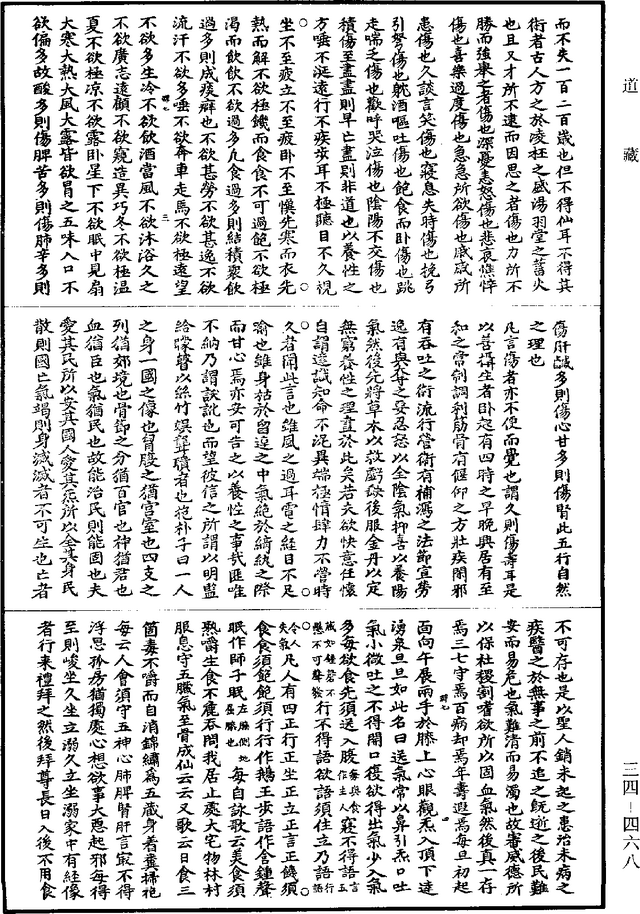 道藏
而不失一百二百歲也但不得仙耳不得其
術者古人方之於凌杯之盛湯羽堂之蓄火
也且又才所不逮而因思之者傷也力所不
勝而強舉之者傷也深憂恚怒傷也悲哀憔悴
傷也喜樂過度傷也急急所欲傷也戚戚所
患傷也久談言笑傷也寢息失時傷也挽弓
引弩傷也躭酒嘔吐傷也飽食而卧傷也跳
走喘乏傷也歡呼哭泣傷也陰陽不交傷也
積傷至盡盡則早亡盡則非道也以養性之
方唾不涎遠行不疾步耳不極聽目不久視
坐不至疲立不至疲卧不至懻先寒而衣先
熱而解不欲極饑而食食不可過飽不欲極
渴而飲飲不欲過多凢食過多則結積聚飲
過多則成痰癖也不欲甚勞不欲甚逸不欲
流汗不欲多唾不欲奔車走馬不欲極遠望
不欲多生冷不欲飲酒當風不欲沐浴久之
不欲廣志遠願不欲窺造異巧冬不欲極溫
夏不欲極凉不欲露卧星下不欲眠中見扇
大寒大熱大風大露皆欲冒之五味入口不
欲偏多故酸多則傷脾苦多則傷肺辛多則
傷肝鹹多則傷心甘多則傷腎此五行自然
之理也
凡言傷者亦不便而覺也謂久則傷壽耳是
以善攝生者卧起有四時之早晚興居有至
和之常制調利筋骨有偃仰之方壯疾閑邪
有吞吐之術流行營衛有補瀉之法節宣勞
逸有與奪之妥忍怒以全陰氣抑喜以養陽
氣然後先將草木以救虧缺後服金丹以定
無窮養性之理盡於此矣若夫欲快意任懷
自謂達識知命不泥異端極情肆力不營時
久者聞此言也雖風之過耳電之經目不足
喻也雖身枯於留連之中氣絕於綺紈之際
而甘心焉亦安可告之以養性之事哉匪唯
不納乃謂訞訛也而望彼信之所謂以明鑒
給曚瞽以絲竹娛聾聵者也抱朴子曰一人
之身一國之像也胷腹之猶宮室也四支之
列猶郊境也骨節之分猶百官也神猶君也
血猶臣也氣猶民也故能治民則能固也夫
愛其民所以安其國人愛其炁所以全其身民
散則國亡氣竭則身滅滅者不可生也亡者
不可存也是以聖人銷未起之患治未病之
疾醫之於無事之前不追之於既逝之後民難
安而易危也氣難清而易濁也故審威德所
以保社稷割嗜欲所以固血氣然後真一存
焉三七守焉百病却焉年壽遐焉每旦初起
面向午展兩手於膝上心眼觀炁入頂下達
湧泉旦旦如此名曰送氣常以鼻引炁口吐
氣小微吐之不得開口復欲得出氣少入氣
多每欲食先須送入腹每與食作主人寢不得語言五
臟如鐘磬不懸不可聲發行不得語欲語須住乃語行語
令人失氣凡人有四正行正坐正立正言正饒須
食食須飽飽須行行作鵝王步語作含鍾聲
眠作師子眠左脇側地屈膝也每自詠歌云美食須
熟嚼生食不麄吞問我居止處大宅物林村
服息守五臟氣至骨成仙云云又歌云日食三
箇毒不嚼而自消錦繡爲五藏身着盡掃袍
每云人會須守五神心肺脾腎肝言寂不得
浮思孫房猶獨處心想欲事大惡起邪每得
至則峻坐久坐立溺久立坐溺家中有經像
者行來禮拜之然後拜尊長日入後不用食
三四—四六八